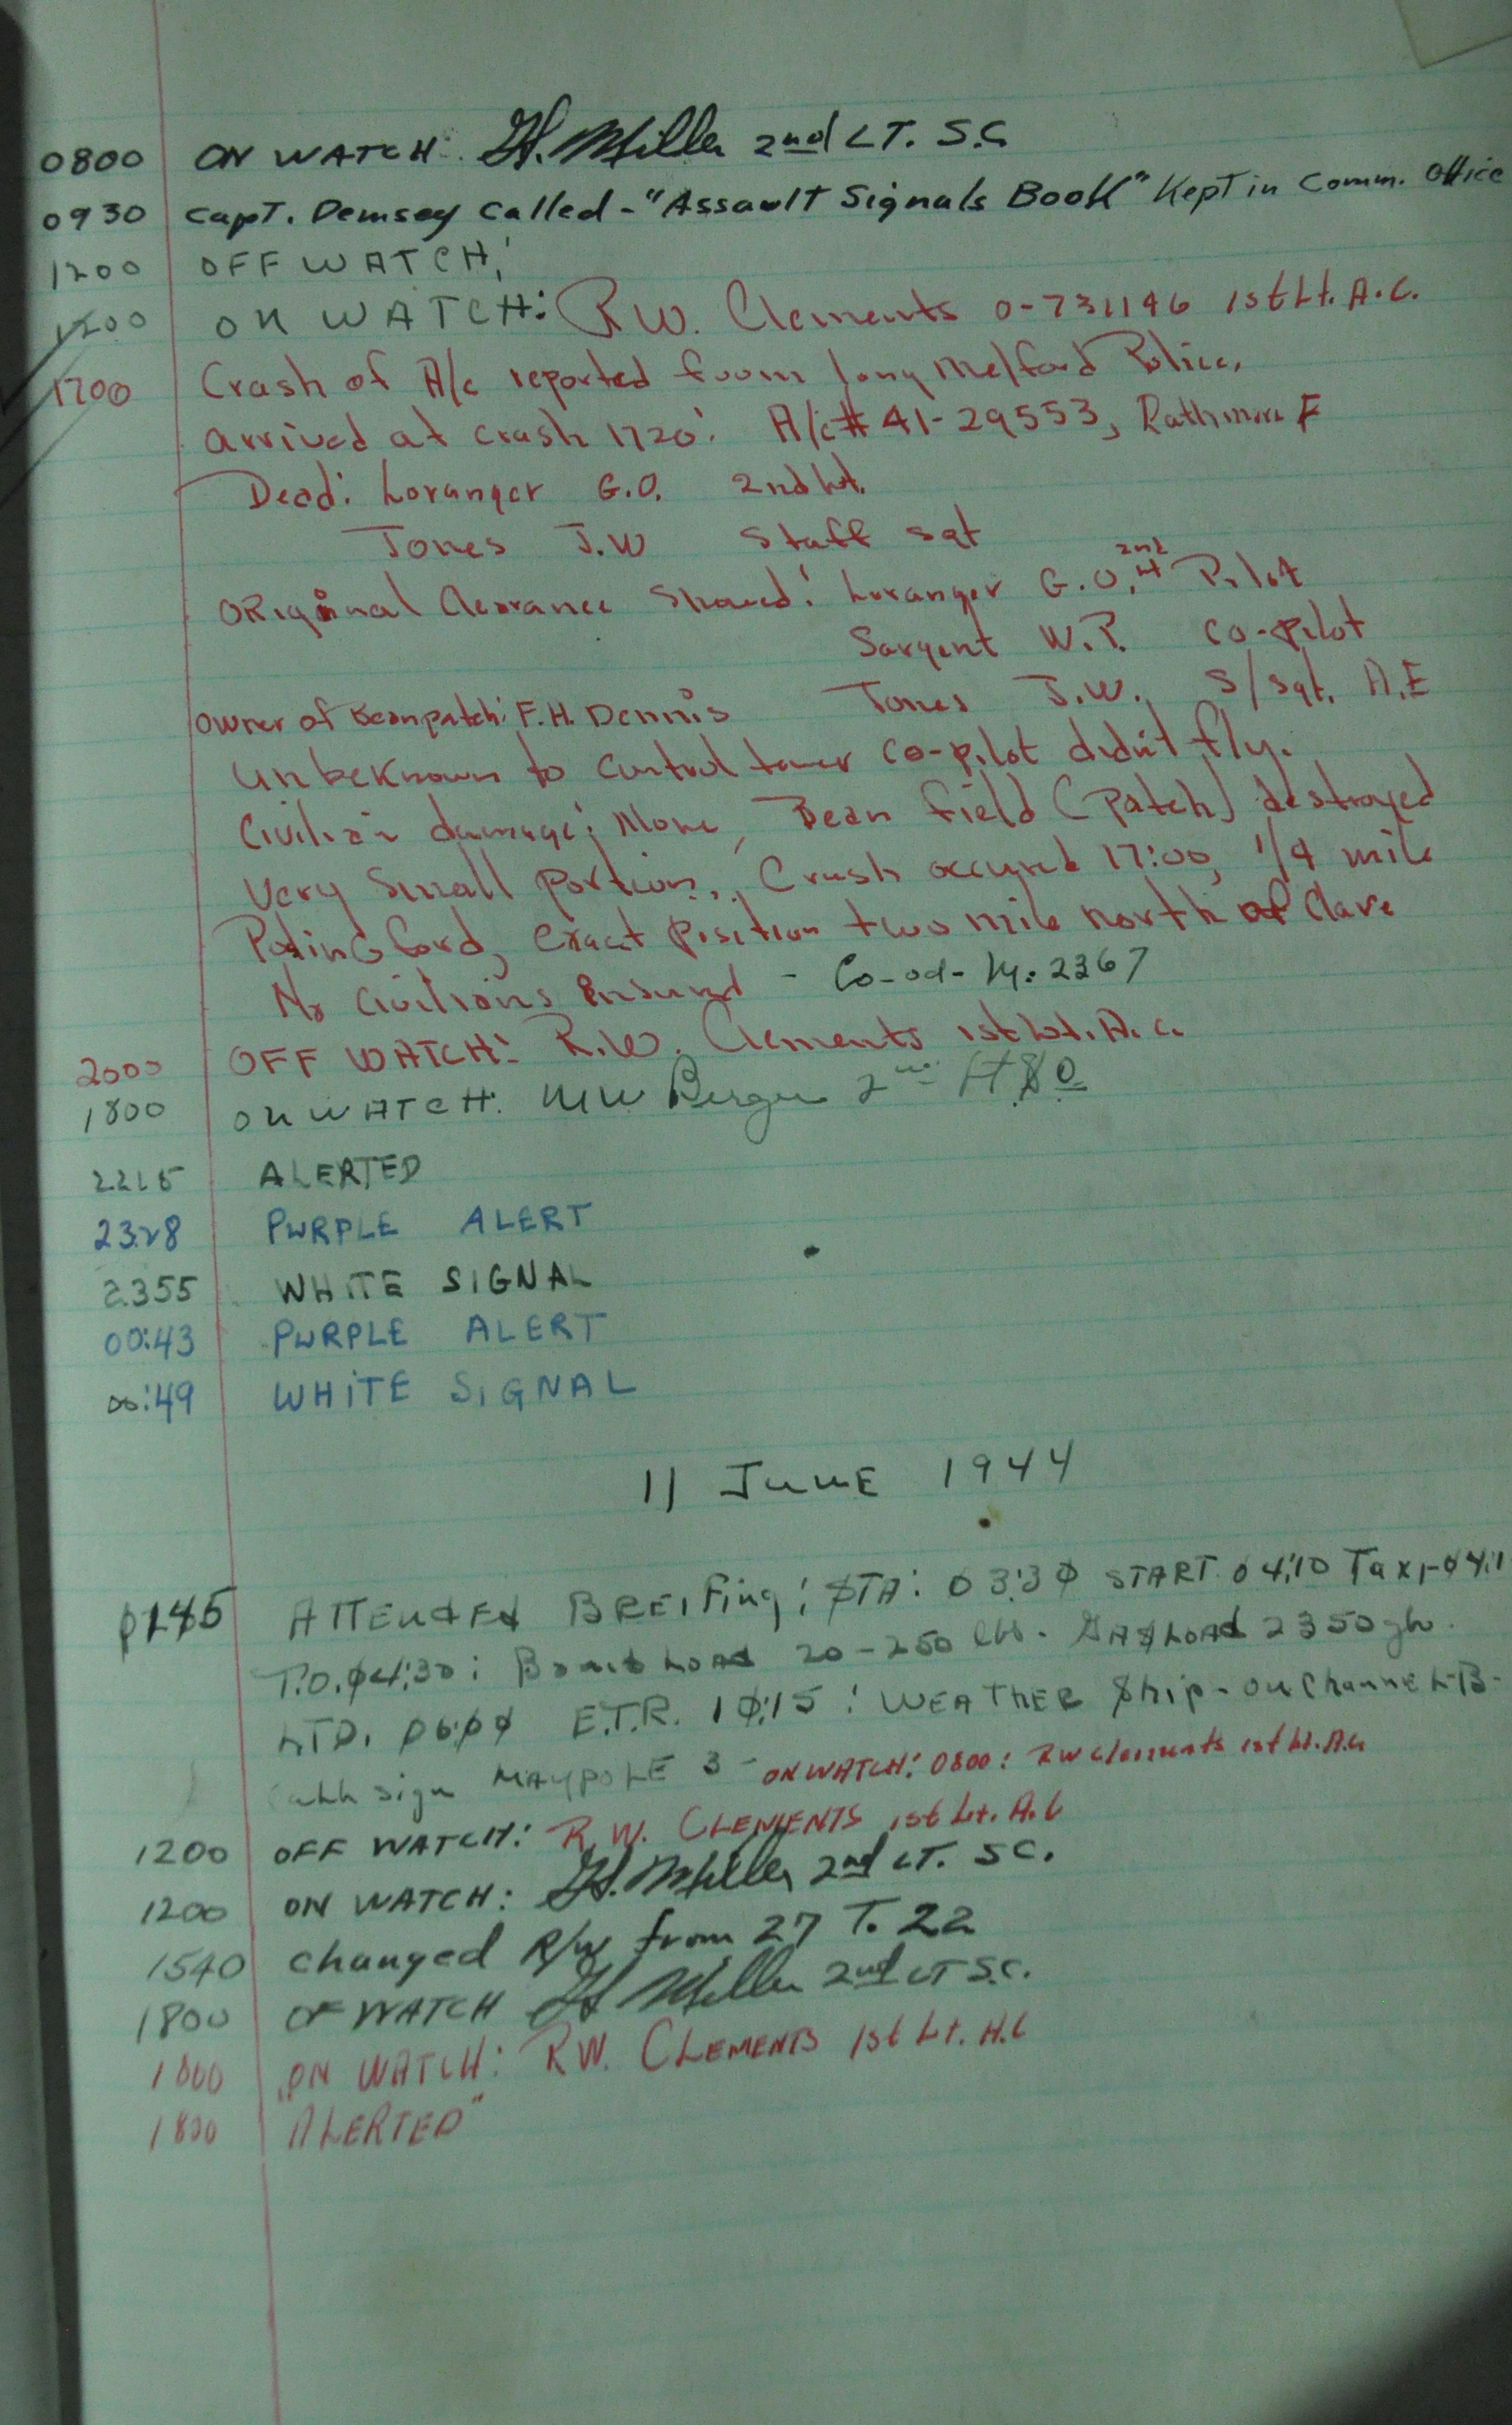 0800 ON WATCH: H. Miller 2nd LT. S.C
0930 Capt. Demsey called - "Assault Signals Book" Kept in Comm. Office
1200 OFF WATCH:
1200 ON WATCH: R.W. Clements 0-731196 1st Lt. A.C.
1700 Crash of A/c reported from long Melford Police,
arrived at crash 1720: A/c # 41-29553, Rathmore F
Dead: Loranger G.O. 2nd Lt.
Jones J.W Staff sgt
ORiginal Clearance Showed: Loranger G.O. 2nd Lt Pilot
Sargent W.P. Co-pilot
Owner of Beanpatch: F.H. Dennis Jones J.W. S/sgt. A.E
Unbeknown to Control tower Co-pilot didn't fly.
Civilian damage; None, Bean field (patch) destroyed
Very Small portion, Crash occured 17:00, 1/4 mile
exact position two mile north of Clare
No Civilians - Co-od- M: 2367
2000 OFF WATCH: R.W. Clements 1st Lt. A.C.
1800 ON WATCH: MW Berger 2nd
2215 ALERTED
2328 PURPLE ALERT
2355 WHITE SIGNAL
00:43 PURPLE ALERT
00:49 WHITE SIGNAL
11 JUNE 1944
ATTENDED BREIFing; STA: 03:30 START 04:10 Taxi-04:1
T.O. 04:30: Bomb LOAD 20-250 lbs. GASLOAD 2350
LTD. 06:00 E.T.R. 10:15: WEATHER Ship - on Channel-B-
Call sign MAYPOLE 3 - ON WATCH: 0800: RW Clements 1st Lt. A.C
1200 OFF WATCH: R.W. CLEMENTS 1st Lt. A.C
1200 ON WATCH: H. Miller 2nd LT. SC.
1540 changed R/W from 27 T. 22
1800 OF WATCH H Miller 2nd LT S.C.
1800 ON WATCH: RW. CLEMENTS 1st Lt. A.C
1830 "ALERTED"